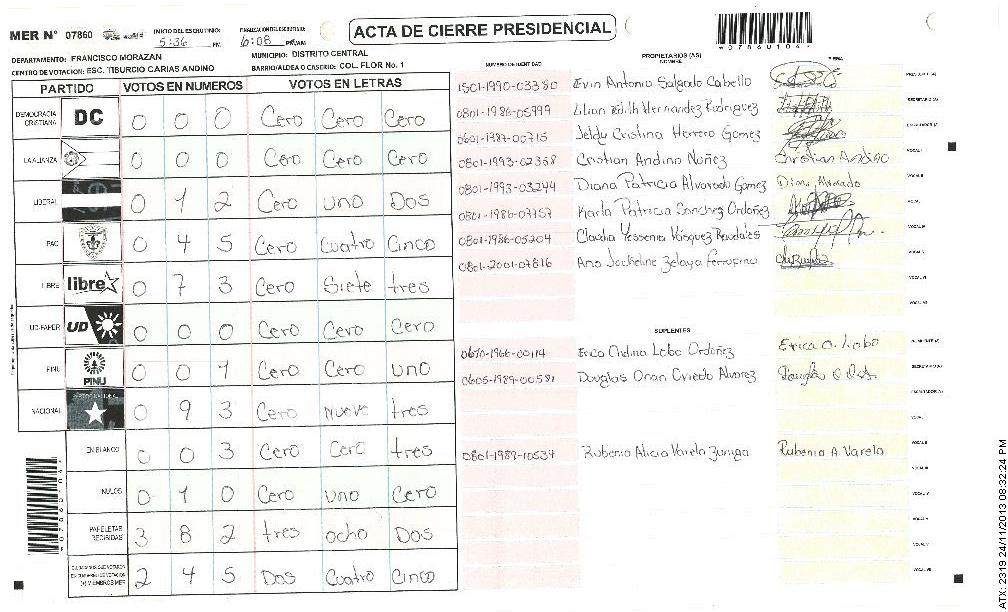 MER N° 07860
INICIO DEL ESCRUTINIO: 5:36 PM
FINALIZACION DEL ESCRUTINIO: 6:08 PM/AM
ACTA DE CIERRE PRESIDENCIAL
*07860106*
DEPARTAMENTO: FRANCISCO MORAZAN
MUNICIPIO: DISTRITO CENTRAL
CENTRO DE VOTACION: ESC. TIBURCIO CARIAS ANDINO
BARRIO/ALDEA O CASERIO: COL. FLOR No. 1
PARTIDO VOTOS EN NUMEROS VOTOS EN LETRAS
DEMOCRACIA CRISTIANA DC 0 0 0 Cero Cero Cero
LA ALIANZA 0 0 0 Cero Cero Cero
LIBERAL 0 1 2 Cero uno Dos
PAC 0 4 5 Cero Cuatro Cinco
LIBRE libre 0 7 3 Cero Siete tres
UD-FAPER UD 0 0 0 Cero Cero Cero
PINU PINU 0 0 1 Cero Cero uno
NACIONAL 0 9 3 Cero Nueve tres
EN BLANCO 0 0 3 Cero Cero tres
NULOS 0 1 0 Cero uno Cero
PAPELETAS RECIBIDAS 3 8 2 tres ocho Dos
CIUDADANOS QUE VOTARON 2 4 5 Dos Cuatro Cinco
(+) MIEMBROS MER
NUMERO DE IDENTIDAD PROPIETARIOS (AS) NOMBRE FIRMA
1501-1990-03380 Evin Antonio Salgado Cabello
0801-1986-05999 Lilian Edith Hernandez Rodriguez
0601-1987-00715 Jeldy Cristina Herrero Gomez
0801-1993-02368 Cristian Andino Nuñez Christian Andino VOCAL I
0801-1993-03244 Diana Patricia Alvarado Gomez Diana Alvarado VOCAL II
0801-1986-07757 Karla Patricia Sanchez Ordoñez
0801-1986-05204 Claudia Yessenia Vasquez
0801-2001-07816 Ana Jackeline Zelaya
SUPLENTES
Erica Ondina Lobo Ordoñez Erica O. Lobo
0605-1989-00581 Douglas Onan Oviedo Alvarez
0801-1989-10534 Rubenia Alicia Varela Zuniga Rubenia A. Varela
ATX: 2319 24/11/2013 08:32:24 PM